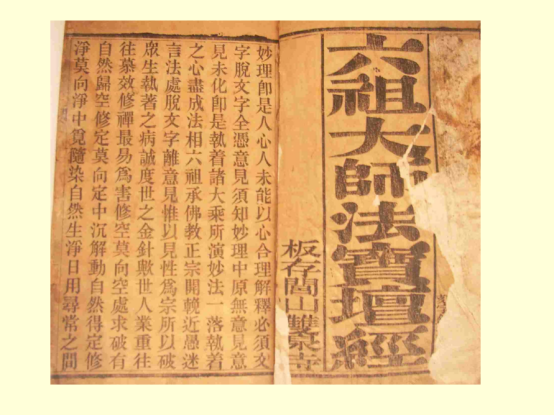 六祖大師法寶壇經
板存閭山雙泉寺
妙理卽是人心人未能以心合理解釋必須文
字脫文字全憑意見須知妙理中原無意見意
見未化卽是執着諸大乘所演妙法一落執着
之心盡成法相六祖承佛教正宗開輓近愚迷
言法處脫文字離意見惟以見性爲宗所以破
衆生執着之病誠度世之金針歎世人業重往
往慕效修禪最易爲害修空莫向空處求破有
自然歸空修定莫向定中沉解動自然得定修
淨莫向淨中覓隨染自然生淨日用尋常之間